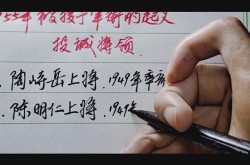 55年被授予军衔的起义
投诚将领
陶峙岳上将.1949年率新
陈明仁上将.1949年